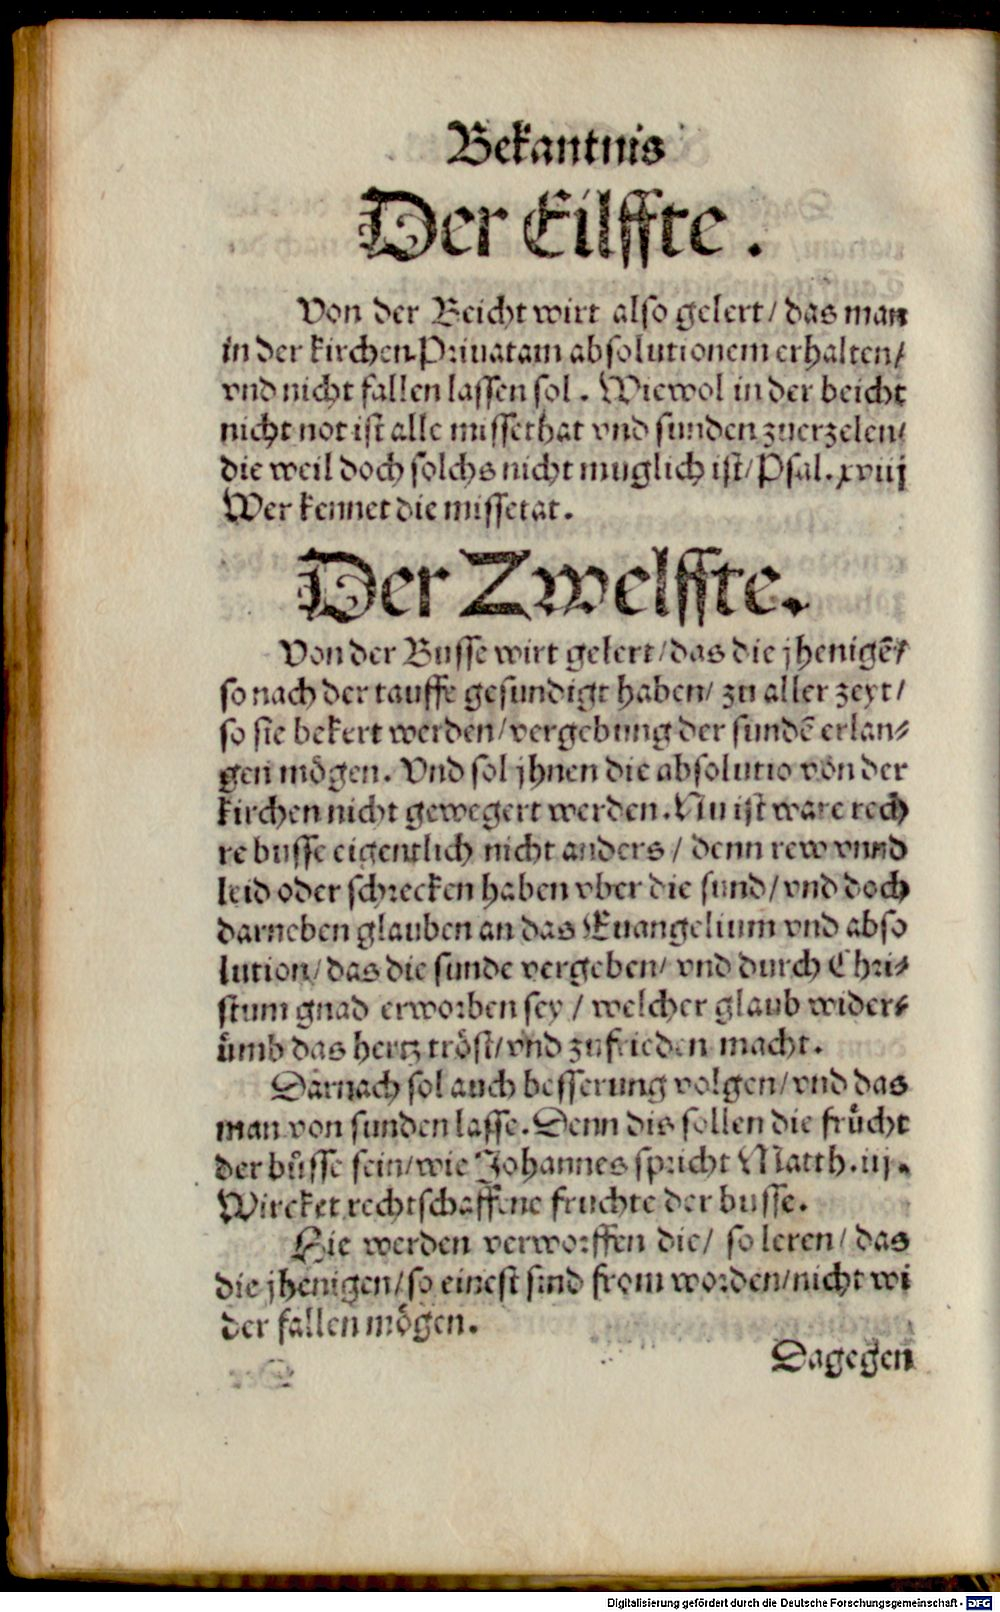 Bekantnis
Der Eilffte.
Von der Beicht wirt also gelert/ das man
in der kirchen Priuatam absolutionem erhalten/
vnd nicht fallen lassen sol. Wiewol in der beicht
nicht not ist alle missethat vnd sunden zuerzelen/
die weil doch solchs nicht muglich ist/ Psal. xviij
Wer kennet die missetat.
Der Zwelffte.
Von der Busse wirt gelert/ das die jhenigē/
so nach der tauffe gesundigt haben/ zu aller zeyt/
so sie bekert werden/ vergebung der sundē erlan⸗
gen mögen. Vnd sol jhnen die absolutio von der
kirchen nicht gewegert werden. Nu ist ware rech
te busse eigentlich nicht anders/ denn rew vnnd
leid oder schrecken haben vber die sund/ vnd doch
darneben glauben an das Euangelium vnd abso
lution/ das die sunde vergeben/ vnd durch Chri⸗
stum gnad erworben sey/ welcher glaub wider⸗
ümb das hertz tröst/ vnd zufrieden macht.
Darnach sol auch besserung volgen/ vnd das
man von sunden lasse. Denn dis sollen die frücht
der büsse sein/ wie Johannes spricht Matth. iij.
Wircket rechtschaffene fruchte der busse.
Hie werden verworffen die/ so leren/ das
die jhenigen/ so einest sind from worden/ nicht wi
der fallen mögen.
Dagegen
Digitalisierung gefördert durch die Deutsche Forschungsgemeinschaft - DFG